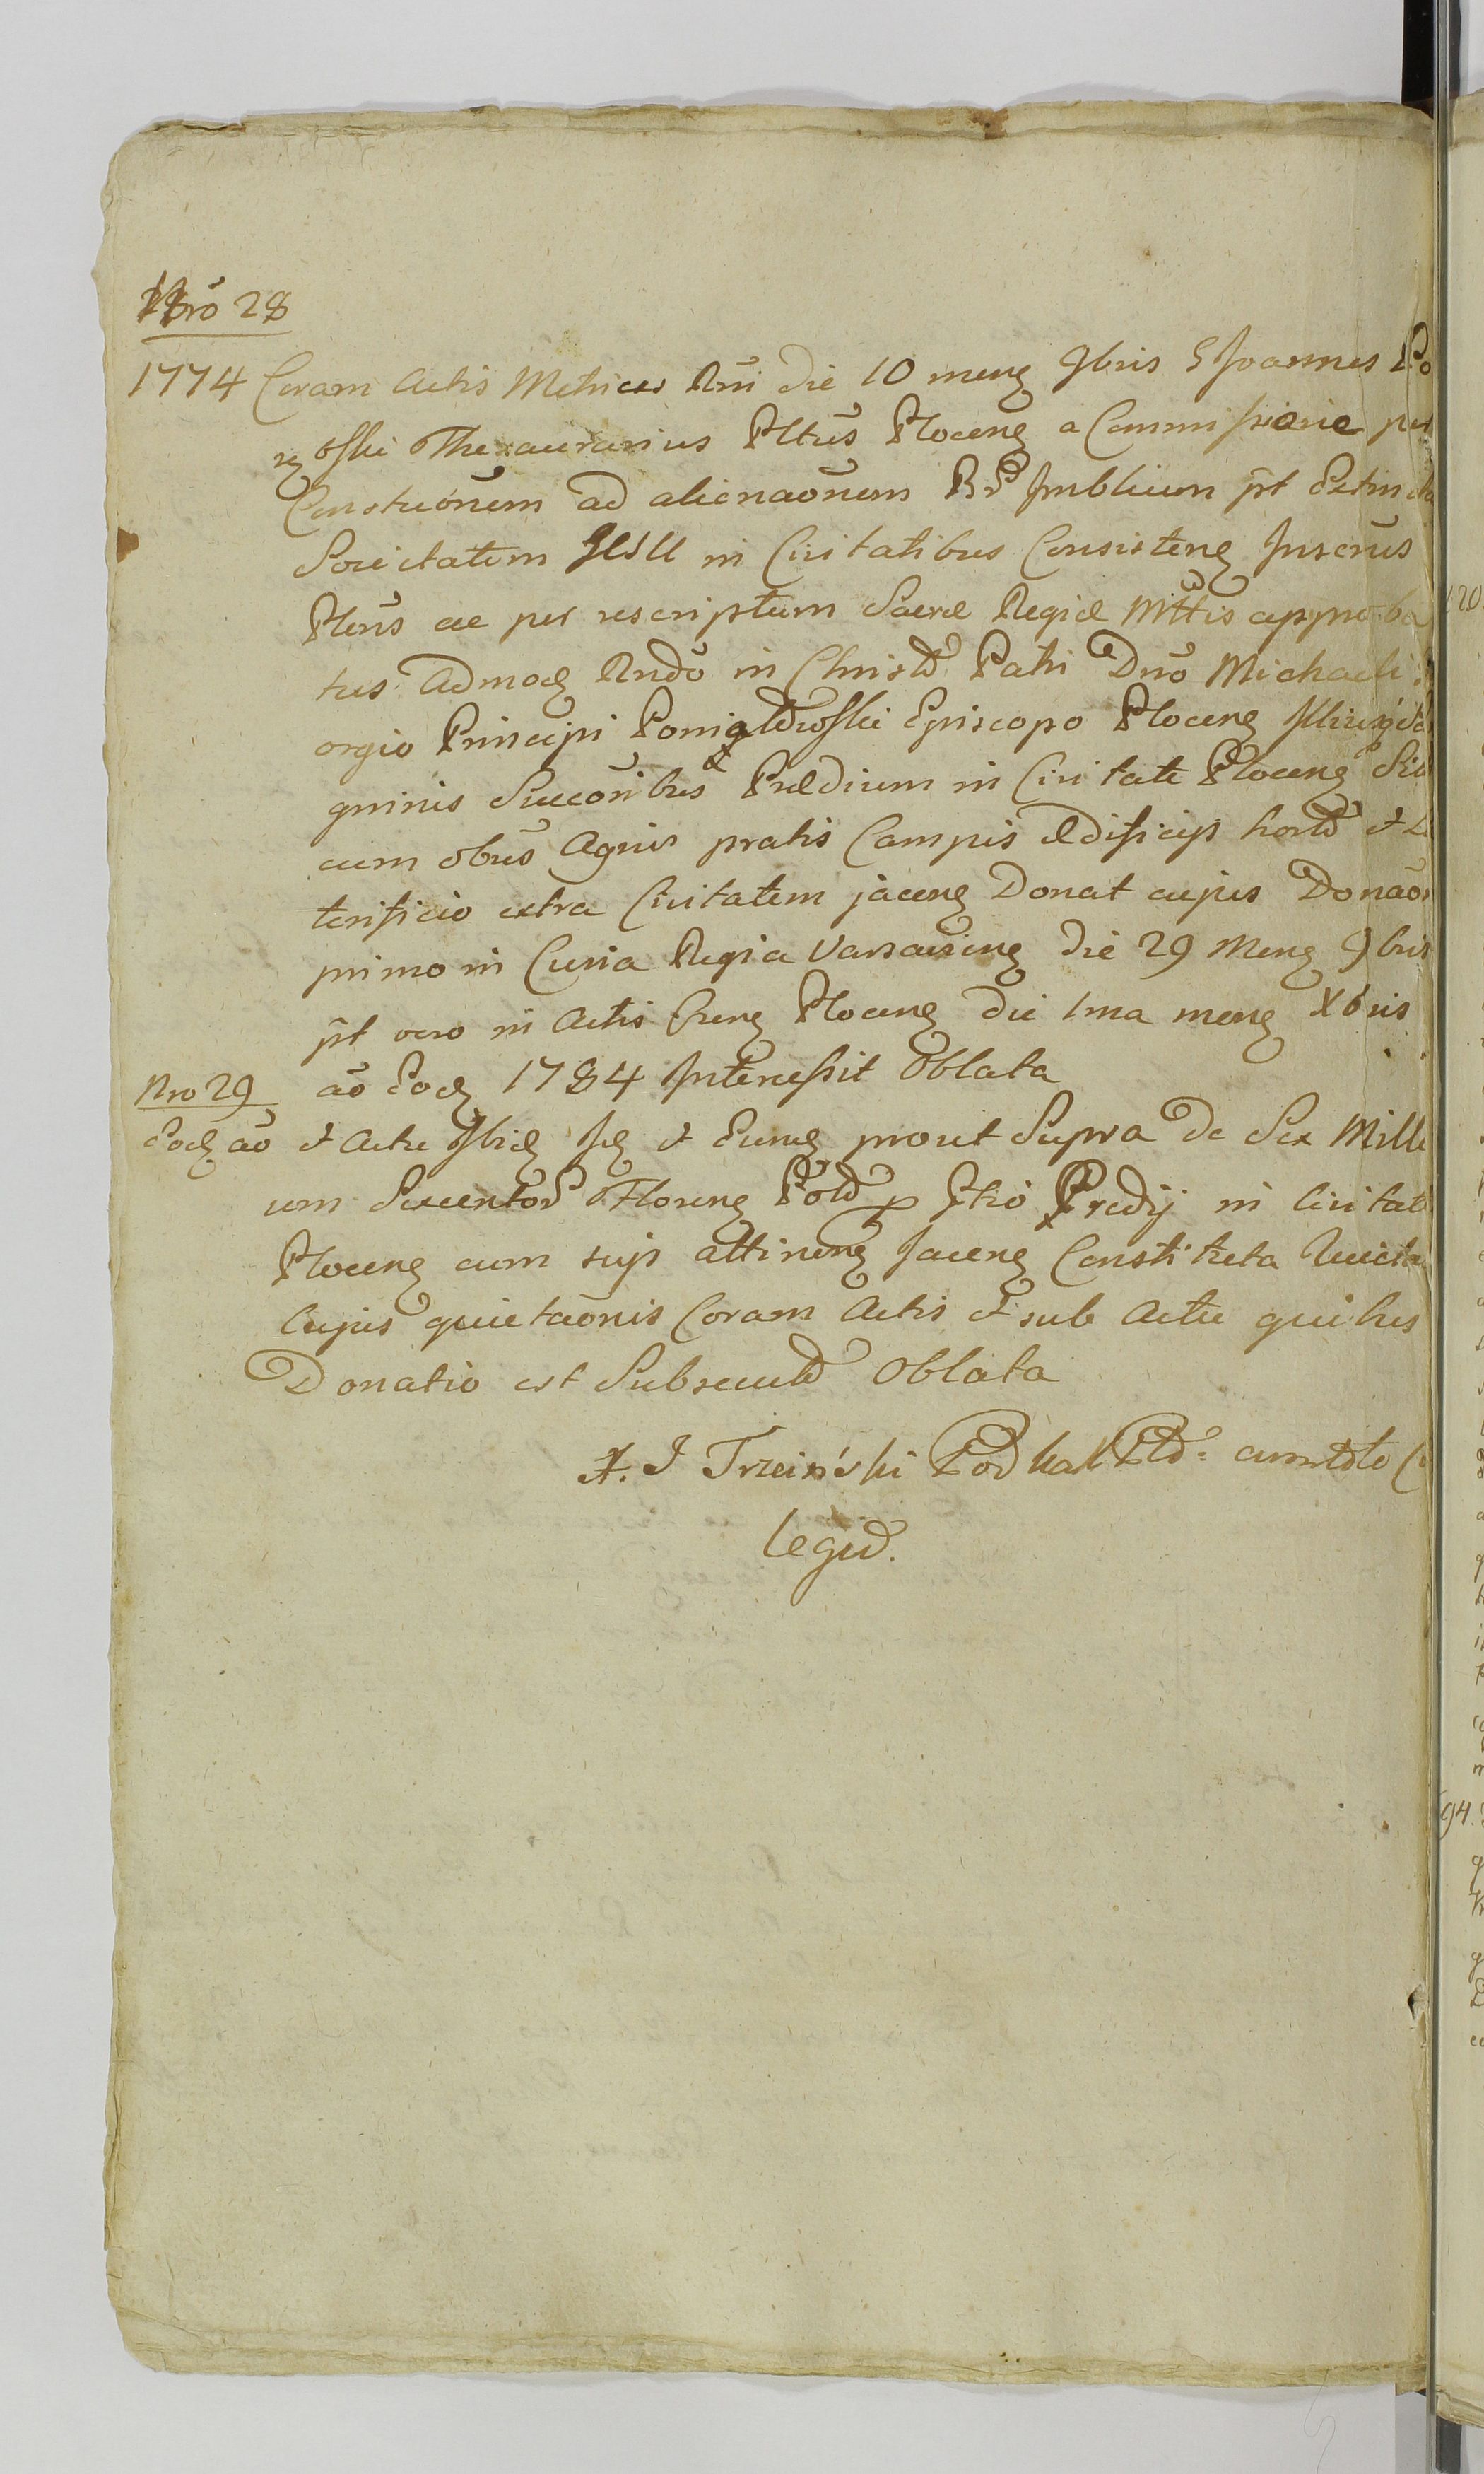 Nrō 28
1774 Coram Actis Metrices Rñi die 10 meng 9bris G Joannes Po
rzoski Thesaurarius Pltūs Ploceng a Commissione per
Constuōnem ad alienaōnem BP Imblium pt Extincta
Societatem JESU in Civitatibus Consisteng
Plens ac per rescriptum Sacræ Regiæ Mttis approba
tus Admod Rndō in Christo Patri Dnō Michaeli
orgio Principi Poniatowski Episcopo Ploceng
Succoribus Prædium in Civitate Ploceng
cum obūs Agris pratis Campis Ædificijs horto et
terificio extra Civitatem jaceng Donat cujus Donaō
primo in Curia Regia Varsavieng die 29 Meng 9bris
pt vero in Actis Ploceng die 1ma meng Xbris
Nro 29 aō Eod 1784 Intercessit Oblata
Eod aō et Actu Ibid Id et Eund prout Supra De Sex Mille
um Sexcentor Floreng Pol p Prædij in Civitate
Ploceng cum sujs attineng Jaceng Constituta Quieta
Cujus quietaōnis Coram Actis et sub Actu quibus
Donatio est Subsecuta Oblata
A. J Trzciński
Legit.